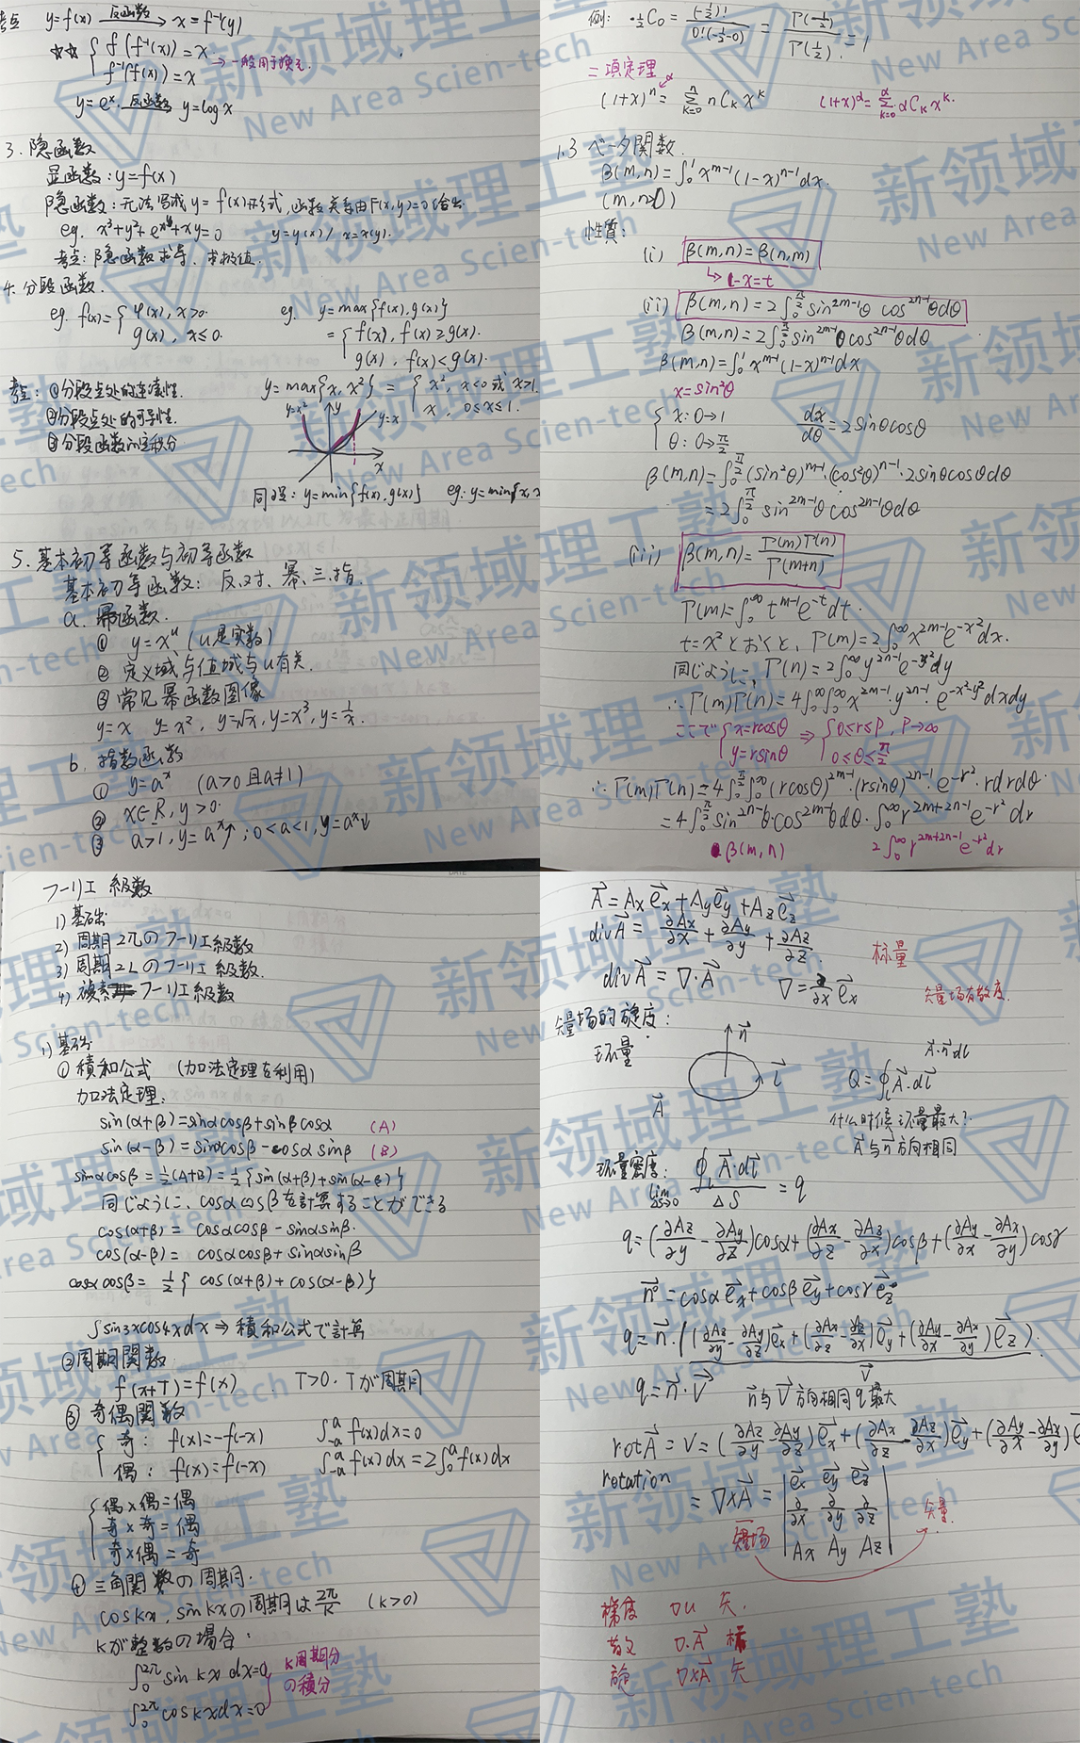 考点 y=f(x) 反函数→ x=f⁻¹(y)
☆☆ { f(f⁻¹(x))=x
f⁻¹(f(x))=x → 一般用于换元.
y=eˣ 反函数→ y=log x
3. 隐函数
显函数: y=f(x)
隐函数: 无法写成 y=f(x) 形式, 函数关系由F(x,y)=0给出
y=y(x) / x=x(y).
考点: 隐函数求导、求极值.
4. 分段函数.
eg. f(x)= { φ(x), x>0
g(x), x≤0.
eg. y=max{f(x),g(x)}
= { f(x), f(x)≥g(x).
g(x), f(x)<g(x).
考点: ①分段点处的连续性.
②分段点处的可导性.
③分段函数的定积分
y=max{x, x²} = { x², x<0 或 x>1.
x, 0≤x≤1.
y=x² y y=x
x
同理: y=min{f(x),g(x)} eg: y=min{x,
5. 基本初等函数与初等函数
基本初等函数: 反、对、幂、三、指.
a. 幂函数.
① y=xᵘ (u是实数)
② 定义域与值域与u有关.
③ 常见幂函数图像
y=x y=x², y=√x, y=x³, y=1/x.
b. 指数函数
① y=aˣ (a>0且a≠1)
② x∈R, y>0
③ a>1, y=aˣ↑; 0<a<1, y=aˣ↓
例: -½C₀ = (-½)!/0!(-½-0)! = Γ(-½)/Γ(½) = 1
二項定理
(1+x)ⁿ = Σ[k=0→n] nCₖ xᵏ (1+x)^α = Σ[k=0→α] αCₖ xᵏ.
1.3 ベータ関数.
β(m,n)=∫₀¹ x^(m-1) (1-x)^(n-1) dx.
(m,n>0)
性質:
(i) β(m,n)=β(n,m)
↳ 1-x=t
(ii) β(m,n)=2∫₀^(π/2) sin^(2m-1)θ cos^(2n-1)θdθ
β(m,n)=2∫₀^(π/2) sin^(2m-1)θ cos^(2n-1)θdθ
β(m,n)=∫₀¹ x^(m-1) (1-x)^(n-1) dx
x=sin²θ
{ x: 0→1
θ: 0→π/2
dx/dθ=2sinθcosθ
β(m,n)=∫₀^(π/2) (sin²θ)^(m-1)·(cos²θ)^(n-1)·2sinθcosθdθ
=2∫₀^(π/2) sin^(2m-1)θ cos^(2n-1)θdθ
(iii) β(m,n)=Γ(m)Γ(n)/Γ(m+n)
Γ(m)=∫₀^∞ t^(m-1) e^(-t) dt.
t=x²とおくと, Γ(m)=2∫₀^∞ x^(2m-1) e^(-x²) dx.
同じように, Γ(n)=2∫₀^∞ y^(2n-1) e^(-y²) dy
∴Γ(m)Γ(n)=4∫₀^∞∫₀^∞ x^(2m-1)·y^(2n-1)·e^(-x²-y²) dxdy
ここで { x=rcosθ
y=rsinθ ⇒ { 0≤r≤P, P→∞
0≤θ≤π/2
∴Γ(m)Γ(n)=4∫₀^(π/2)∫₀^∞ (rcosθ)^(2m-1)·(rsinθ)^(2n-1)·e^(-r²)·rdrdθ.
=4∫₀^(π/2) sin^(2n-1)θ·cos^(2m-1)θdθ·∫₀^∞ r^(2m+2n-1) e^(-r²) dr
β(m,n) 2∫₀^∞ r^(2m+2n-1) e^(-r²) dr
フーリエ級数
1) 基礎
2) 周期2πのフーリエ級数
3) 周期2Lのフーリエ級数.
4) 複素フーリエ級数
1) 基礎
① 積和公式 (加法定理を利用)
加法定理:
sin(α+β)=sinαcosβ+sinβcosα (A)
sin(α-β)=sinαcosβ-cosαsinβ (B)
sinαcosβ=½(A+B)=½{sin(α+β)+sin(α-β)}
同じように, cosαcosβを計算することができる
cos(α+β)= cosαcosβ-sinαsinβ.
cos(α-β)= cosαcosβ+sinαsinβ
cosαcosβ= ½{cos(α+β)+cos(α-β)}
∫sin3xcos4xdx ⇒ 積和公式で計算
②周期関数
f(x+T)=f(x) T>0. Tが周期
③ 奇偶関数
{ 奇: f(x)=-f(-x) ∫₋ₐᵃ f(x)dx=0
偶: f(x)=f(-x) ∫₋ₐᵃ f(x)dx=2∫₀ᵃ f(x)dx
{ 偶×偶=偶
奇×奇=偶
奇×偶=奇
④ 三角関数の周期.
coskx, sinkxの周期は 2π/k (k>0)
kが整数の場合:
∫₀^2π sin kx dx=0
∫₀^2π cos kx dx=0
k周期分の積分
A⃗=Ax e⃗x+Ay e⃗y+Az e⃗z
divA⃗= ∂Ax/∂x + ∂Ay/∂y + ∂Az/∂z. 标量
divA⃗=∇·A⃗ ∇=∂/∂x e⃗x 矢量场有散度.
矢量场的旋度:
环量 n⃗ l⃗ A⃗
A⃗·n⃗ dl
Q=∮ₗ A⃗·dl⃗
什么时候环量最大?
A⃗与n⃗方向相同
环量密度: lim ΔS→0 ∮ₗ A⃗·dl⃗ / ΔS = q
q=(∂Az/∂y-∂Ay/∂z)cosα+(∂Ax/∂z-∂Az/∂x)cosβ+(∂Ay/∂x-∂Ax/∂y)cosγ
n⃗°=cosαe⃗x+cosβe⃗y+cosγe⃗z
q=n⃗·((∂Az/∂y-∂Ay/∂z)e⃗x+(∂Ax/∂z-∂Az/∂x)e⃗y+(∂Ay/∂x-∂Ax/∂y)e⃗z).
V⃗
q=n⃗·V⃗ n⃗与V⃗方向相同q最大
rotA⃗=V=(∂Az/∂y-∂Ay/∂z)e⃗x+(∂Ax/∂z-∂Az/∂x)e⃗y+(∂Ay/∂x-∂Ax/∂y)e⃗
rotation
=∇×A⃗= | e⃗x e⃗y e⃗z
∂/∂x ∂/∂y ∂/∂z
Ax Ay Az |
矢量场 矢量.
梯度 ∇u 矢.
散 ∇·A⃗ 标
旋 ∇×A⃗ 矢
新领域理工塾
New Area Scien-tech